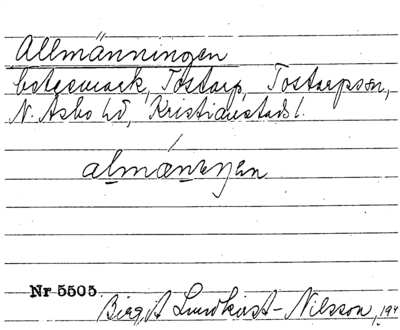 Allmänningen
betesmark, Tostarp, Tostarpssn,
N. Åsbo hd, Kristianstads l.
Nr 5505
Birgit Lundkvist-Nilsson, 194